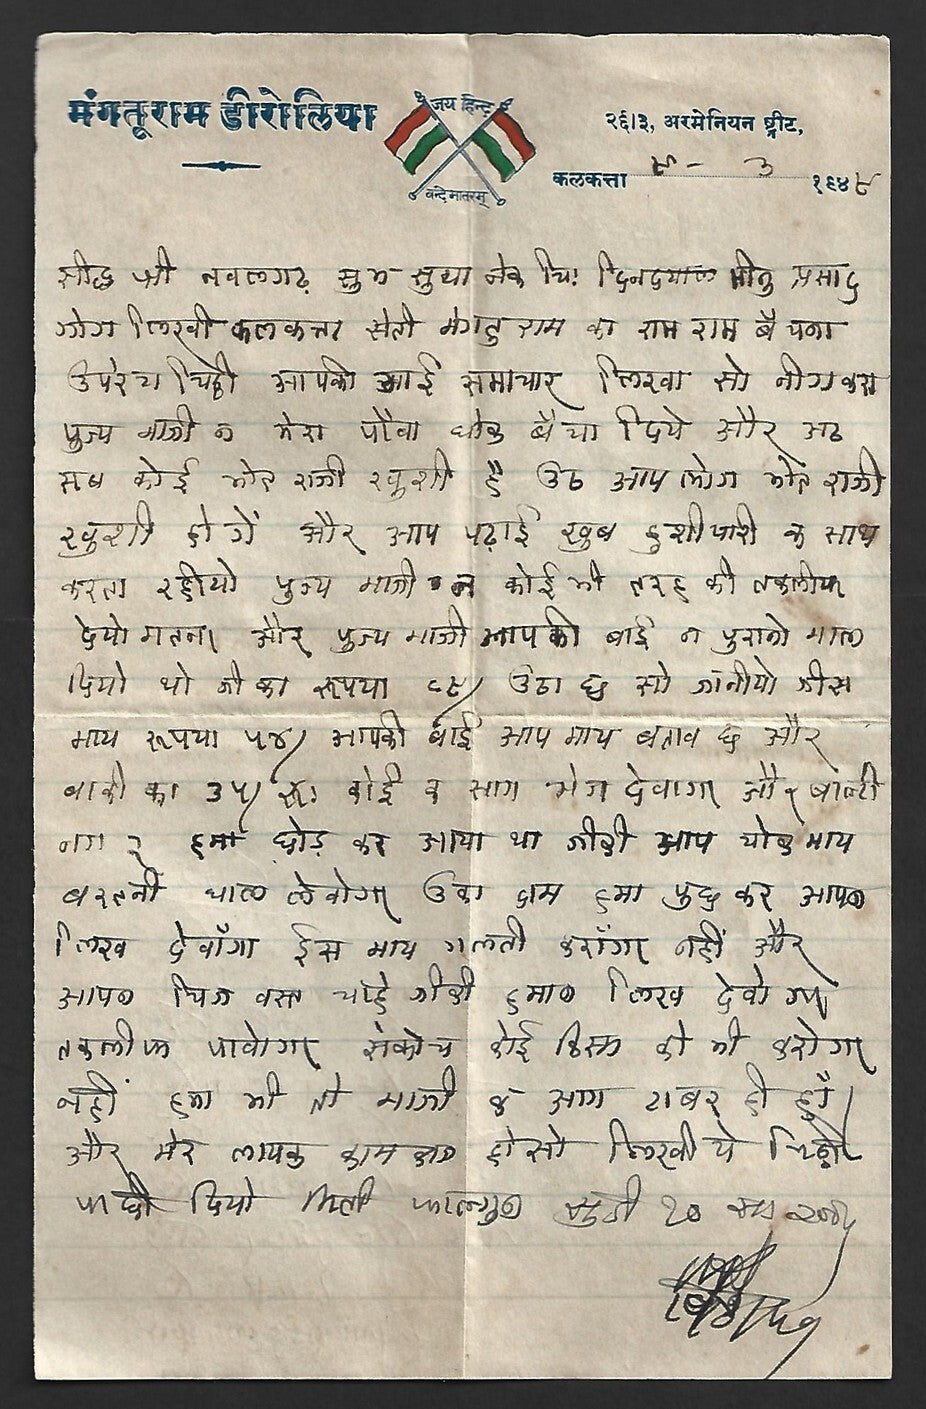 मंगतूराम डीरोलिया
जय हिन्द
वन्देमातरम्
२६।३, अरमेनियन ष्ट्रीट,
कलकत्ता ९ - ३ १९४९
श्री नवलगढ़ सुभ सुथा नेक चि! दिनदयाल प्रसाद
जोग लिखी कलकत्ता सेती मंगतु राम का राम राम बंचना
उपरंच चिठ्ठी आपकी आई समाचार लिखा सो
पुज्य माजी न मेरा पांवा धोक बैचा दिये और अठ
सब कोई भोत राजी खुशी है उठ आप लोग भोत राजी
खुशी होगें और आप पढ़ाई खुब हुशीयारी क साथ
करता रहीयो पुज्य माजी न कोई भी तरह की तकलीफ
देयो मतना और पुज्य माजी आपकी बाई न पुरानो माल
दियो थो जी का रूपया ८९) उठा छ सो जांनीयो जीस
माय रूपया ५४) आपकी बाई आप माय बताव छ और
बाकी का ३५) रू! कोई क साग भेज देवागा और बाल्टी
नग २ हमा छोड़ कर आया था जीकी आप चोक माय
बरतनी घाल लेवोगा उका दाम हमा पुछ कर आपक
लिख देवाँगा ईस माय गलती कराँगा नहीं और
आपक चिज वस्त चाहे जीकी हमाक लिख देवोगा
तकलीफ पावोगा संकोच कोई किसम को भी करोगा
नहीं हमा भी तो माजी क आग टाबर ही हाँ।
और मेर लायक काम काज होसो लिखीये चिठ्ठी
पाछी दियो मिती फाल्गुन सुदी १०